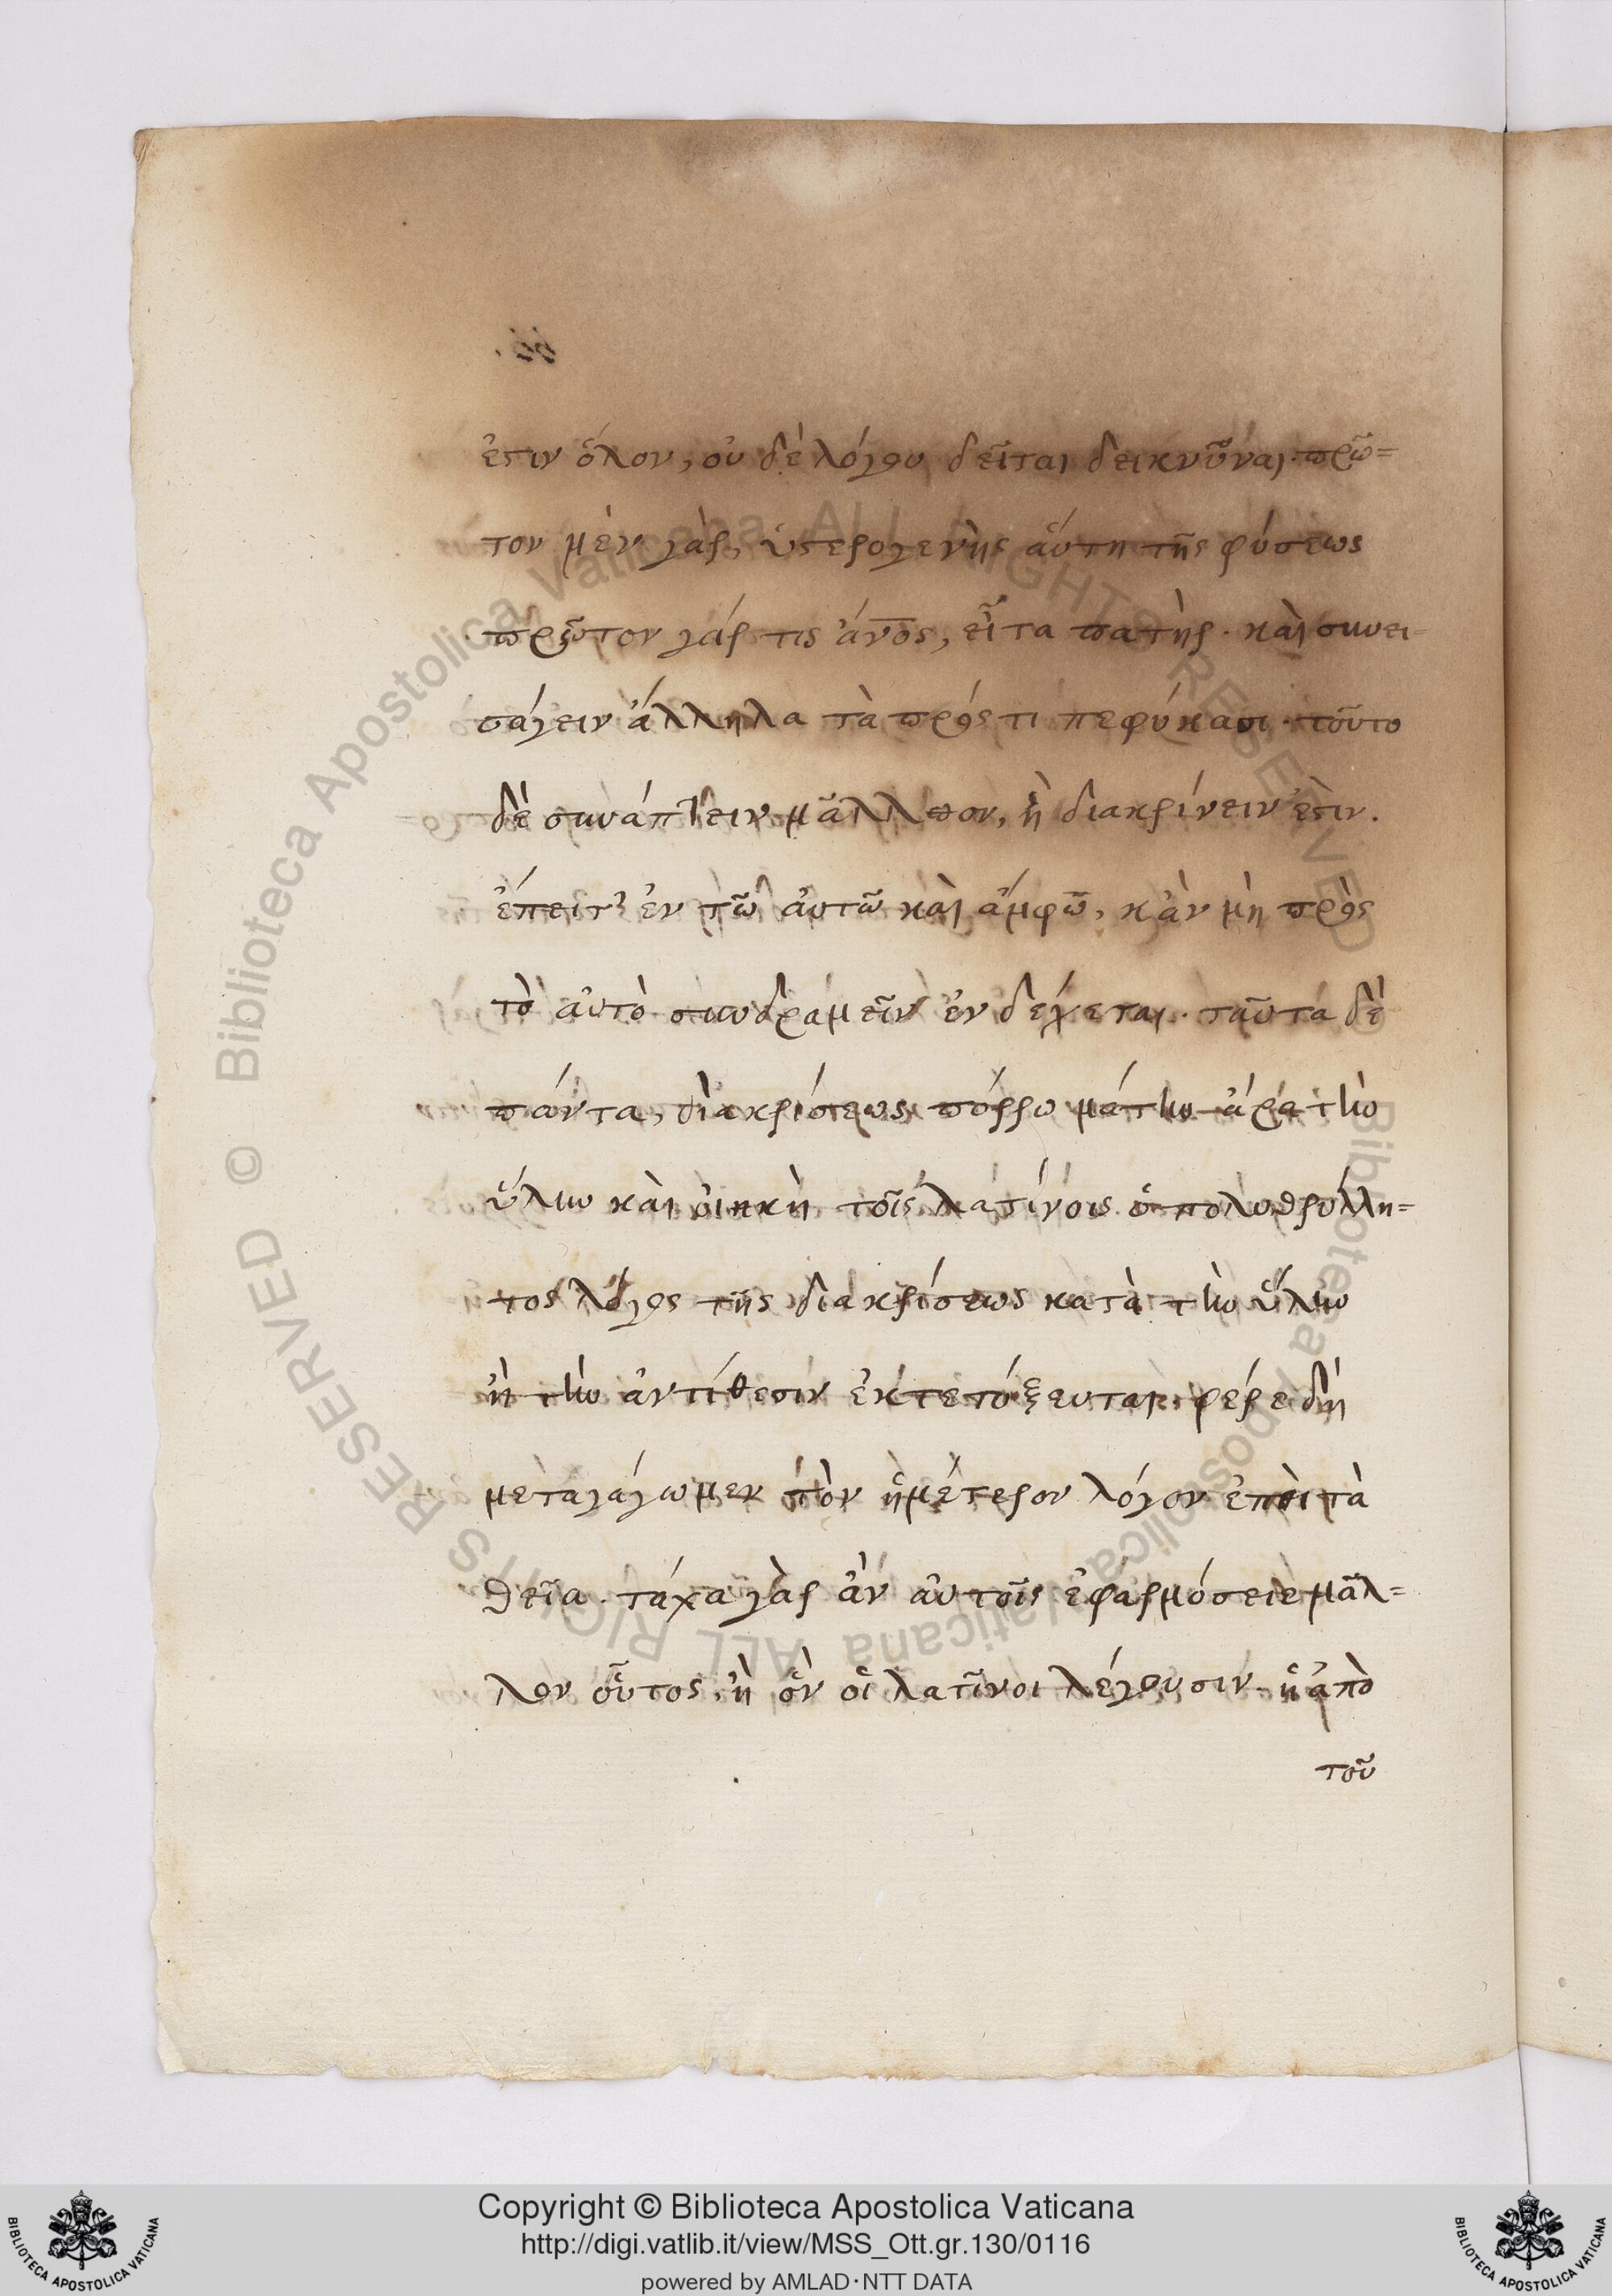 ἐστιν ὅλον, οὐδὲ λόγου δεῖται δεικνῦναι. πρῶ=
τον μὲν γὰρ, ὑστερογενὴς αὕτη τῆς φύσεως
πρῶτον γάρ τις ἄνος, εἶτα πατὴρ. καὶ συνει=
σάγειν ἄλληλα τὰ πρός τι πεφύκασι. τοῦτο
δὲ συνάπτειν μᾶλλον, ἢ διακρίνειν ἐστιν.
ἔπειτ' ἐν τῶ αὐτῶ καὶ ἄμφω, κἂν μὴ πρὸς
τὸ αὐτὸ συνδραμεῖν ἐνδέχεται. ταῦτα δὲ
πάντα, διακρίσεως πόρρω μάτην ἄρα τὴν
ὕλην καὶ εἰκῆ τοῖς λατίνοις ὁ πολυθρύλλη=
τος λόγος τῆς διακρίσεως κατὰ τὴν ὕλην
ἢ τὴν ἀντίθεσιν ἐκτετόξευται. φέρε δὴ
μεταγάγωμεν τὸν ἡμέτερον λόγον ἐπὶ τὰ
θεῖα. τάχα γὰρ ἂν αὐτοῖς ἐφαρμόσειε μᾶλ=
λον οὗτος, ἢ ὃν οἱ λατῖνοι λέγουσιν. ἡ ἀπὸ
τοῦ
Copyright © Biblioteca Apostolica Vaticana
http://digi.vatlib.it/view/MSS_Ott.gr.130/0116
powered by AMLAD·NTT DATA
BIBLIOTECA APOSTOLICA VATICANA
BIBLIOTECA APOSTOLICA VATICANA
© Biblioteca Apostolica Vaticana ALL RIGHTS RESERVED
© Biblioteca Apostolica Vaticana ALL RIGHTS RESERVED